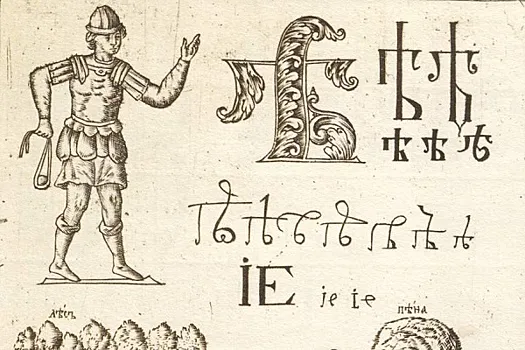 Ѣ Ѣ Ѣ
ѣ ѣ ѣ
ѣ ѣ ѣ ѣ ѣ ѣ ѣ
ІЕ іе іе
лѣсъ
пѣна